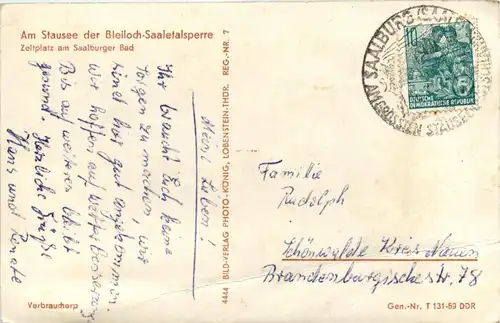 Am Stausee der Bleiloch-Saaletalsperre
Zeltplatz am Saalburger Bad
Meine Lieben!
Ihr braucht Euch keine
Sorgen zu machen, wir
sind hier gut angekommen.
Wir hoffen auf Wetterbesserung.
Bis auf weiteres bleibt
gesund. Herzliche Grüße
Hans und Renate
Verbraucherp
4444 BILD-VERLAG PHOTO-KÖNIG, LOBENSTEIN-THÜR. REG.-NR. 7
SAALBURG (SAALE)
AM GROSSEN STAUSEE
10
DEUTSCHE
DEMOKRATISCHE REPUBLIK
Familie
Rudolph
Schönwalde Kreis Nauen
Brandenburgischestr. 78
Gen.-Nr. T 131-59 DDR